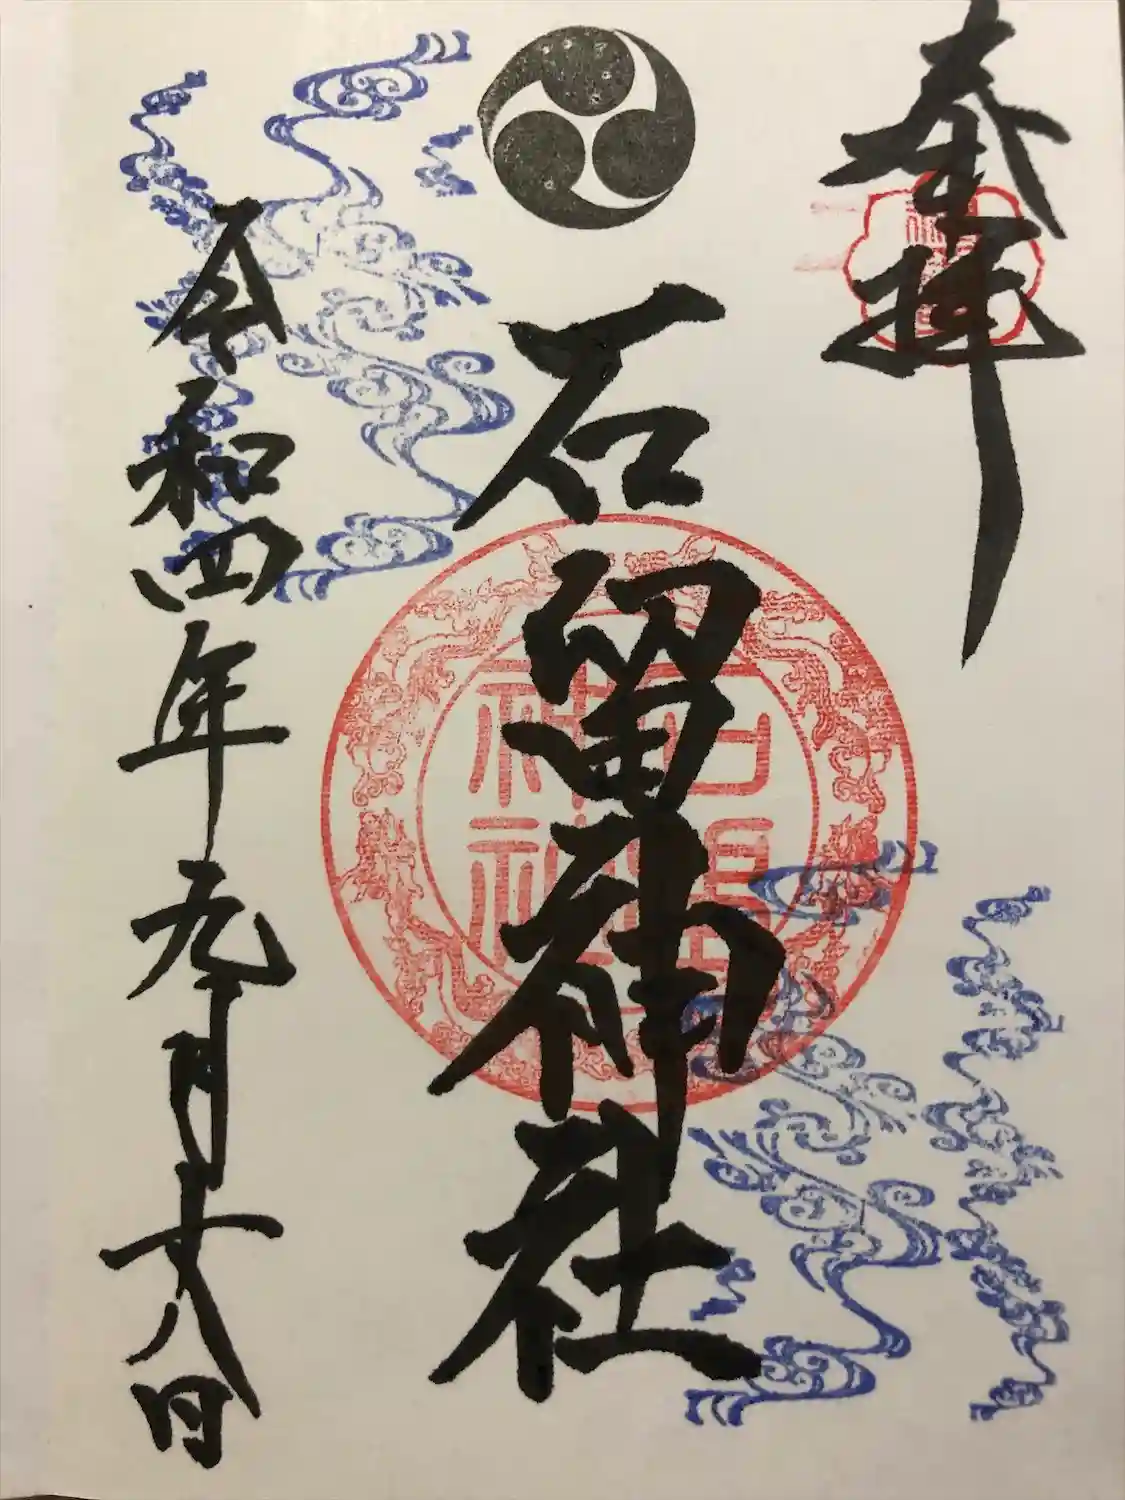 奉拝
石留神社
令和四年九月十八日